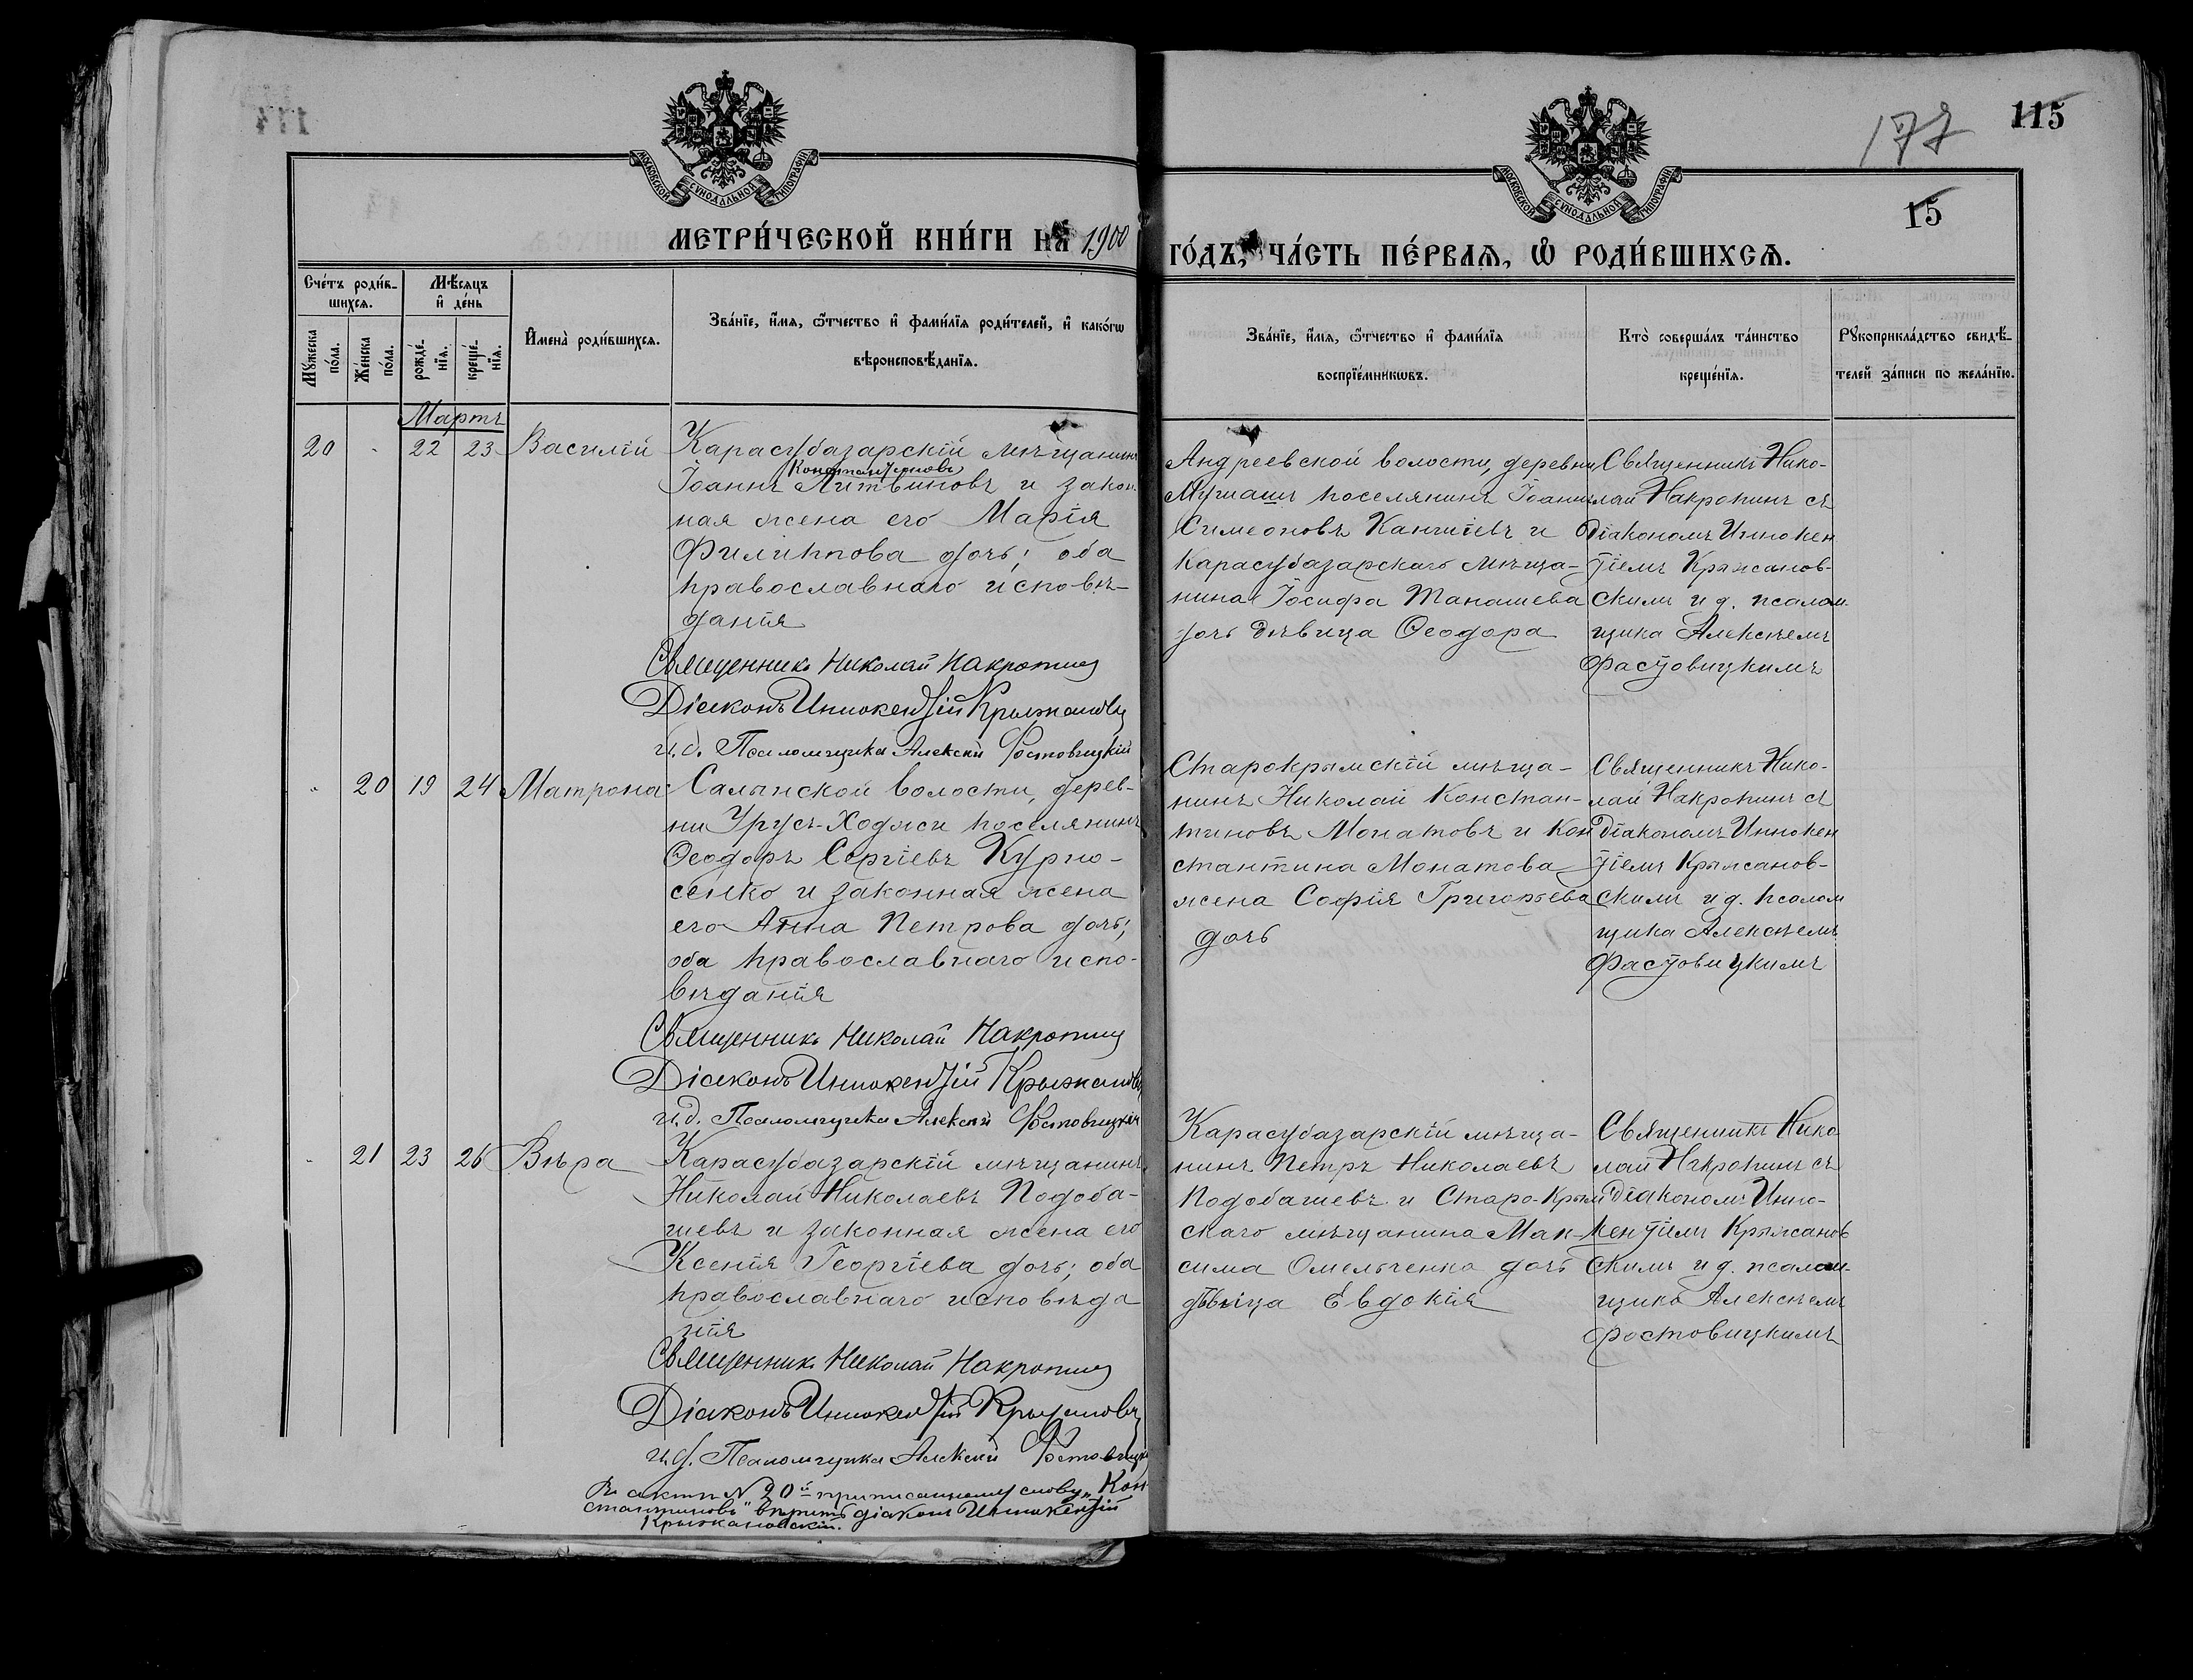 115
177
15
МОСКОВСКОЙ СѴНОДАЛЬНОЙ ТИПОГРАФІИ
МОСКОВСКОЙ СѴНОДАЛЬНОЙ ТИПОГРАФІИ
МЕТРИ́ЧЕСКОЙ КНИ́ГИ НА 1900
ГО́ДЪ, ЧА́СТЬ ПЕ́РВАѦ, Ѡ РОДИ́ВШИХСѦ.
Сче́тъ роди́в-
шихсѧ.
Мѣ́сѧцъ
и҆ де́нь
Мꙋ́жеска по́ла.
Же́нска по́ла.
рожде́нїѧ.
креще́нїѧ.
И҆мена̀ роди́вшихсѧ.
Зва́нїе, и҆́мѧ, ѻ҆́тчество и҆ фами́лїѧ роди́телей, и҆ како́гѡ
вѣроисповѣ́данїѧ.
Зва́нїе, и҆́мѧ, ѻ҆́тчество и҆ фами́лїѧ
воспрїе́мникѡвъ.
Кто̀ соверша́лъ та́инство
креще́нїѧ.
Рꙋкоприкла́дство свидѣ́-
телей за́писи по жела́нїю.
Мартъ
20 - 22 23 Василій
Карасубазарскій мѣщанинъ
Константиновъ
Іоаннъ Литвиновъ и закон-
ная жена его Марія
Филиппова дочь; оба
православнаго исповѣ-
данія
Священникъ Николай Накропинъ
Діаконъ Иннокентій Крыжановск
и. д. Псаломщика Алексѣй Фастовицкій
Андреевской волости, деревни
поселянинъ Іоаннъ
Симеоновъ Кангиевъ и
Карасубазарскаго мѣща-
нина Іосифа Танашева
дочь дѣвица Ѳеодора
Священникъ Нико-
лай Накропинъ съ
діакономъ Иннокен
тіемъ Крыжанов-
скимъ и д. псалом-
щика Алексѣемъ
Фастовицкимъ
- 20 19 24 Матрона
Салынской волости, дерев-
ни Урусъ-Ходжи поселянинъ
Ѳеодоръ Сергіевъ Курно-
сенко и законная жена
его Анна Петрова дочь;
оба православнаго испо-
вѣданія
Священникъ Николай Накропинъ
Діаконъ Иннокентій Крыжановск
и. д. Псаломщика Алексѣй Фастовицкій
Старокрымскій мѣща-
нинъ Николай Констан-
тиновъ Монатовъ и Кон
стантина Монатова
жена Софія Григорьева
дочь
Священникъ Нико-
лай Накропинъ съ
діакономъ Иннокен
тіемъ Крыжанов-
скимъ и д. псалом
щика Алексѣемъ
Фастовицкимъ
- 21 23 26 Вѣра
Карасубазарскій мѣщанинъ
Николай Николаевъ Подоба-
шевъ и законная жена его
Ксенія Георгіева дочь; оба
православнаго исповѣда
нія
Священникъ Николай Накропинъ
Діаконъ Иннокентій Крыжановск
и. д. Псаломщика Алексѣй Фастовицкі
Карасубазарскій мѣща-
нинъ Петръ Николаевъ
Подобашевъ и Старо-Крым
скаго мѣщанина Мак-
сима Омельченко дочь
дѣвица Евдокія
Священникъ Нико
лай Накропинъ съ
діакономъ Инно-
кентіемъ Крыжанов
скимъ и д. псалом-
щика Алексѣемъ
Фостовицкимъ
Въ актѣ № 20й приписанному слову „Кон-
стантиновъ" вѣрить діаконъ Иннокентій
Крыжановскій.